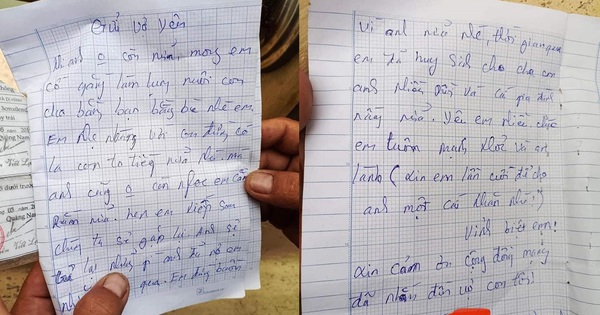 Gửi vợ yêu
Khi anh o còn nữa, mong em
cố gắng làm lụng nuôi con
cho bằng bạn bằng bè nhé em
Em nhẹ nhàng với con đừng có
la con to tiếng nữa nhé. mai
anh cũng o còn nhọc em cằn
nhằn nữa. hẹn em kiếp sau
chúng ta sẽ gặp lại Anh sẽ
trả lại những gì anh đã nợ em
qua. Em đừng buồn
Vì anh nữa nhé, thời gian qua
em đã huy sinh cho cha con
anh nhiều rồi và cả gia đình
này nữa. Yêu em nhiều chúc
em luôn mạnh khoẻ và an
lành (xin em lần cuối để cho
anh một cái nhẫn nhé!)
Vĩnh biệt em!
xin cảm ơn cộng đồng mạng
đã nhắn đến vợ con tôi!
Quảng Nam